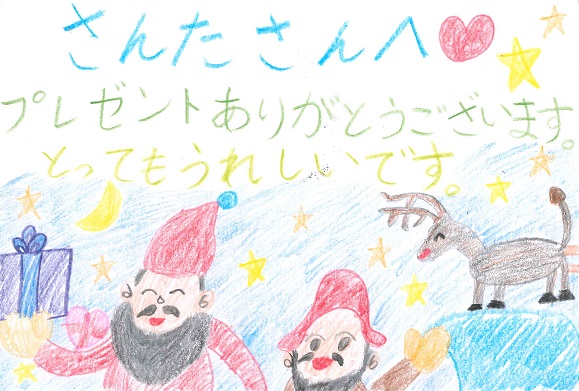 さんたさんへ
プレゼントありがとうございます。
とってもうれしいです。